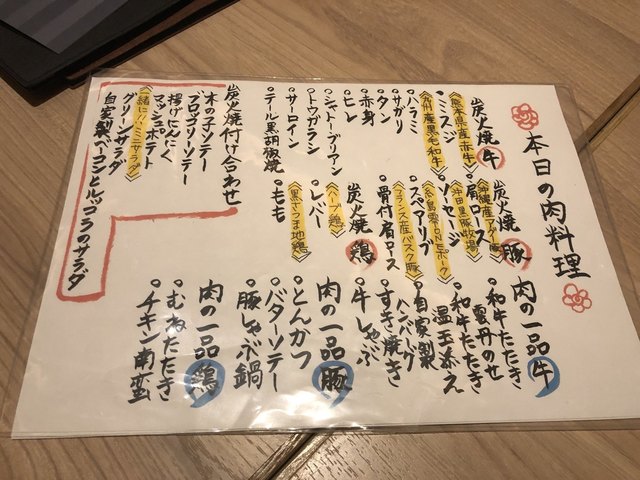 本日の肉料理
炭火焼 牛
《熊本県産赤牛》
・ミスジ
《九州産黒毛和牛》
・ハラミ
・サガリ
・タン
・赤身
・ヒレ
・シャトーブリアン
・トウガラシ
・サーロイン
・テール黒胡椒焼
炭火焼 豚
《沖縄産アグー豚》
・肩ロース
《沖田黒豚牧場》
・ソーセージ
《糸島雷山ONEポーク》
・スペアリブ
《フランス産バスク豚》
・骨付肩ロース
炭火焼 鶏
《ハーブ鶏》
・レバー
《黒さつま地鶏》
・もも
肉の一品 牛
・和牛たたき
雲丹のせ
・和牛たたき
温玉添え
・自家製
ハンバーグ
・すき焼き
・牛しゃぶ
肉の一品 豚
・とんかつ
・バターソテー
・豚しゃぶ鍋
肉の一品 鶏
・むねたたき
・チキン南蛮
炭火焼付け合わせ
木の子ソテー
ブロッコリーソテー
揚げにんにく
マッシュポテト
《一緒に!!ミニサラダ》
グリーンサラダ
自家製ベーコンとルッコラのサラダ